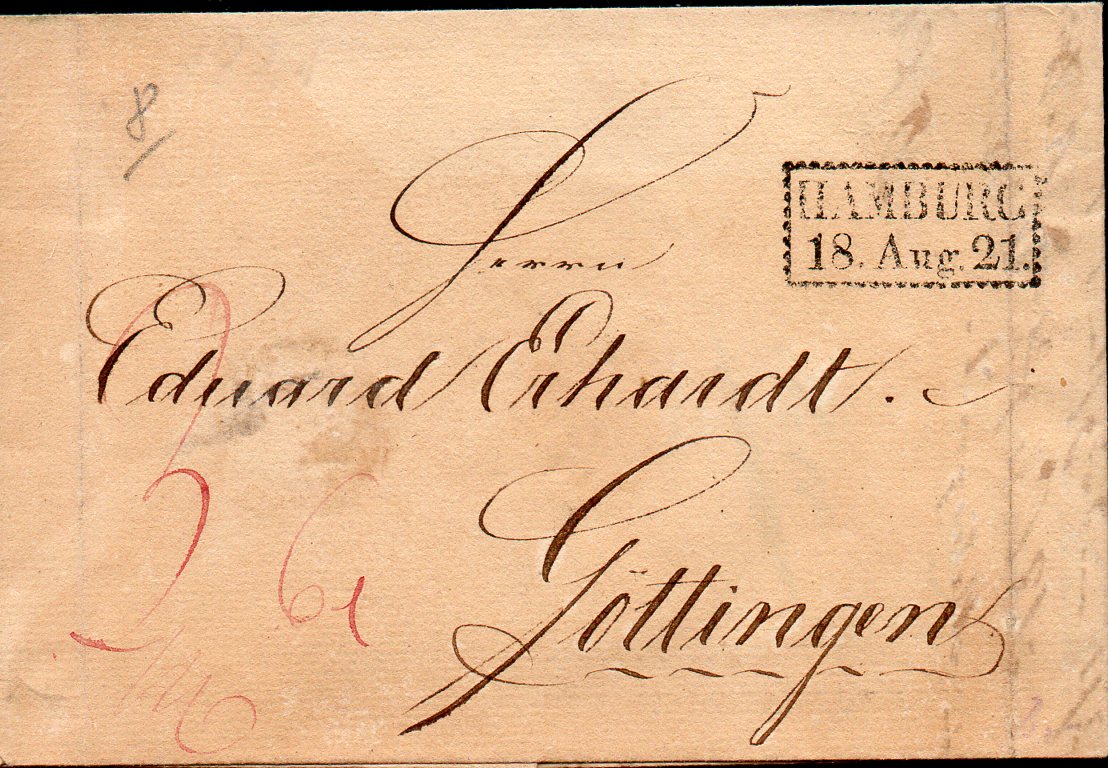 8
HAMBURG
18. Aug. 21.
Herrn
Eduard Erhardt.
Göttingen